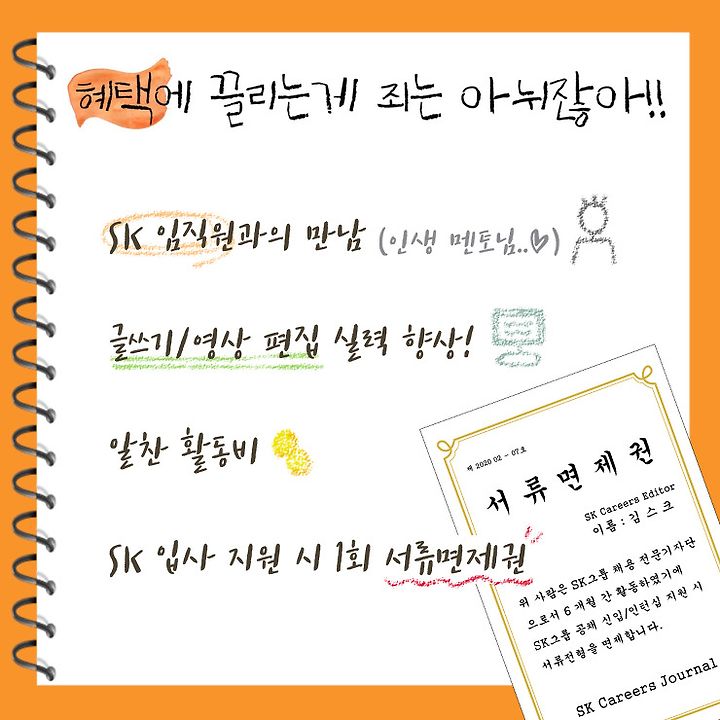 혜택에 끌리는게 죄는 아뉘잖아!!
SK 임직원과의 만남 (인생 멘토님..♡)
글쓰기/영상 편집 실력 향상!
알찬 활동비
SK 입사 지원 시 1회 서류면제권
제 2020 02 - 07호
서류면제권
SK Careers Editor
이름 : 김스크
위 사람은 SK그룹 채용 전문기자단
으로서 6개월 간 활동하였기에
SK그룹 공채 신입/인턴십 지원 시
서류전형을 면제합니다.
SK Careers Journal